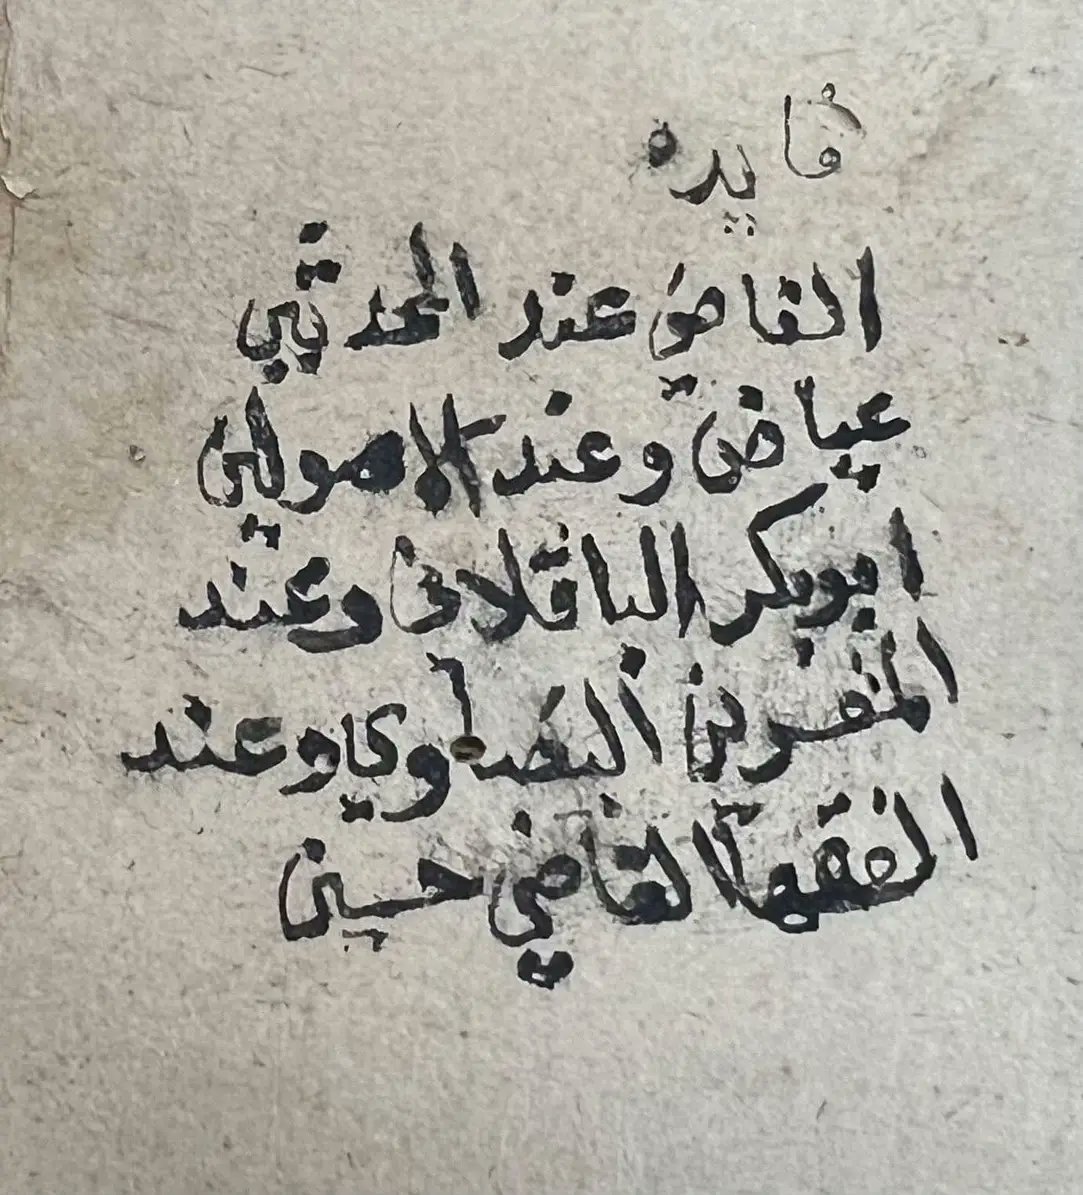 فايده
القاضي عند المحدثين
عياض وعند الاصولين
ابو بكر الباقلاني وعند
المفسرين البيضاوي وعند
الفقها القاضي حسين